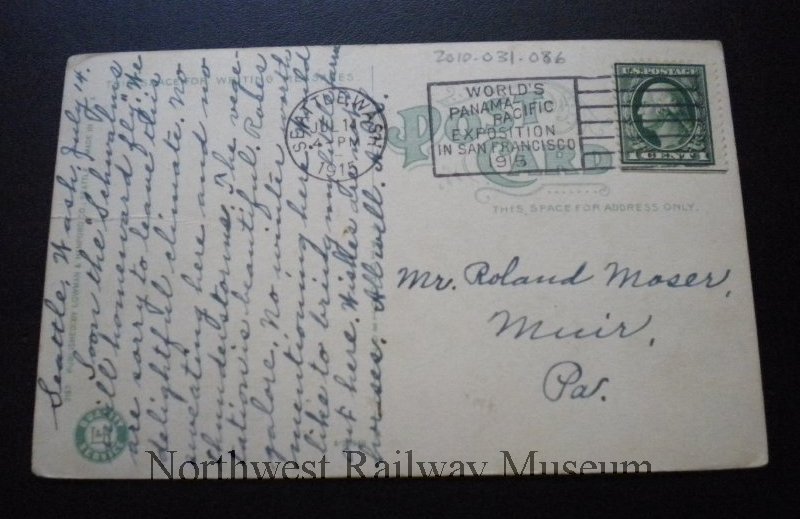 2010.031.086
THIS SPACE FOR WRITING MESSAGES
SEATTLE, WASH.
JUL 14
4 PM
1915
WORLD'S
PANAMA-PACIFIC
EXPOSITION
IN SAN FRANCISCO
1915
U.S. POSTAGE
1 CENT 1
POST CARD
THIS SPACE FOR ADDRESS ONLY.
Mr. Roland Moser,
Muir,
Pa.
Seattle, Wash., July 14.
Soon the "Schwalms
will homeward fly." We
are sorry to leave this
delightful climate. No
sweating here and no
thunderstorms. The vege-
tation is beautiful. Roses
galore. No winter worth
mentioning here. Would
like to bring my little farm
out here.
horses. All well. A.
Northwest Railway Museum